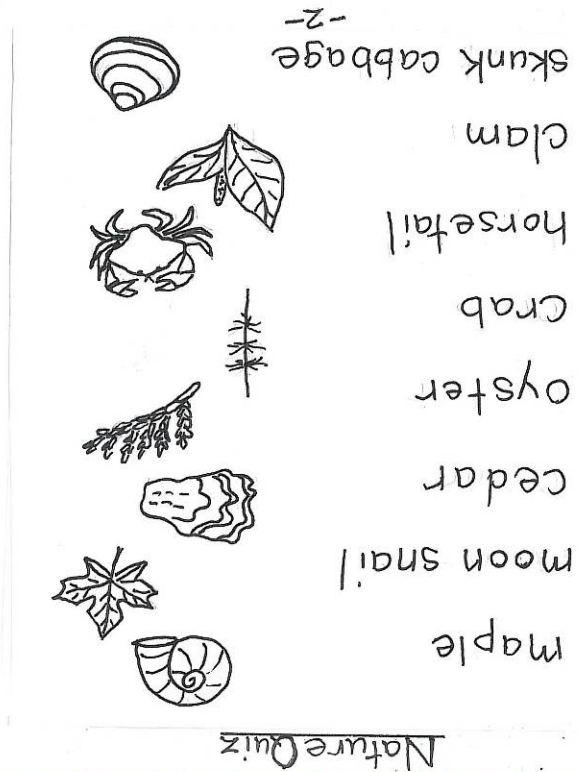 Nature Quiz
maple
moon snail
cedar
oyster
crab
horsetail
clam
skunk cabbage
-2-